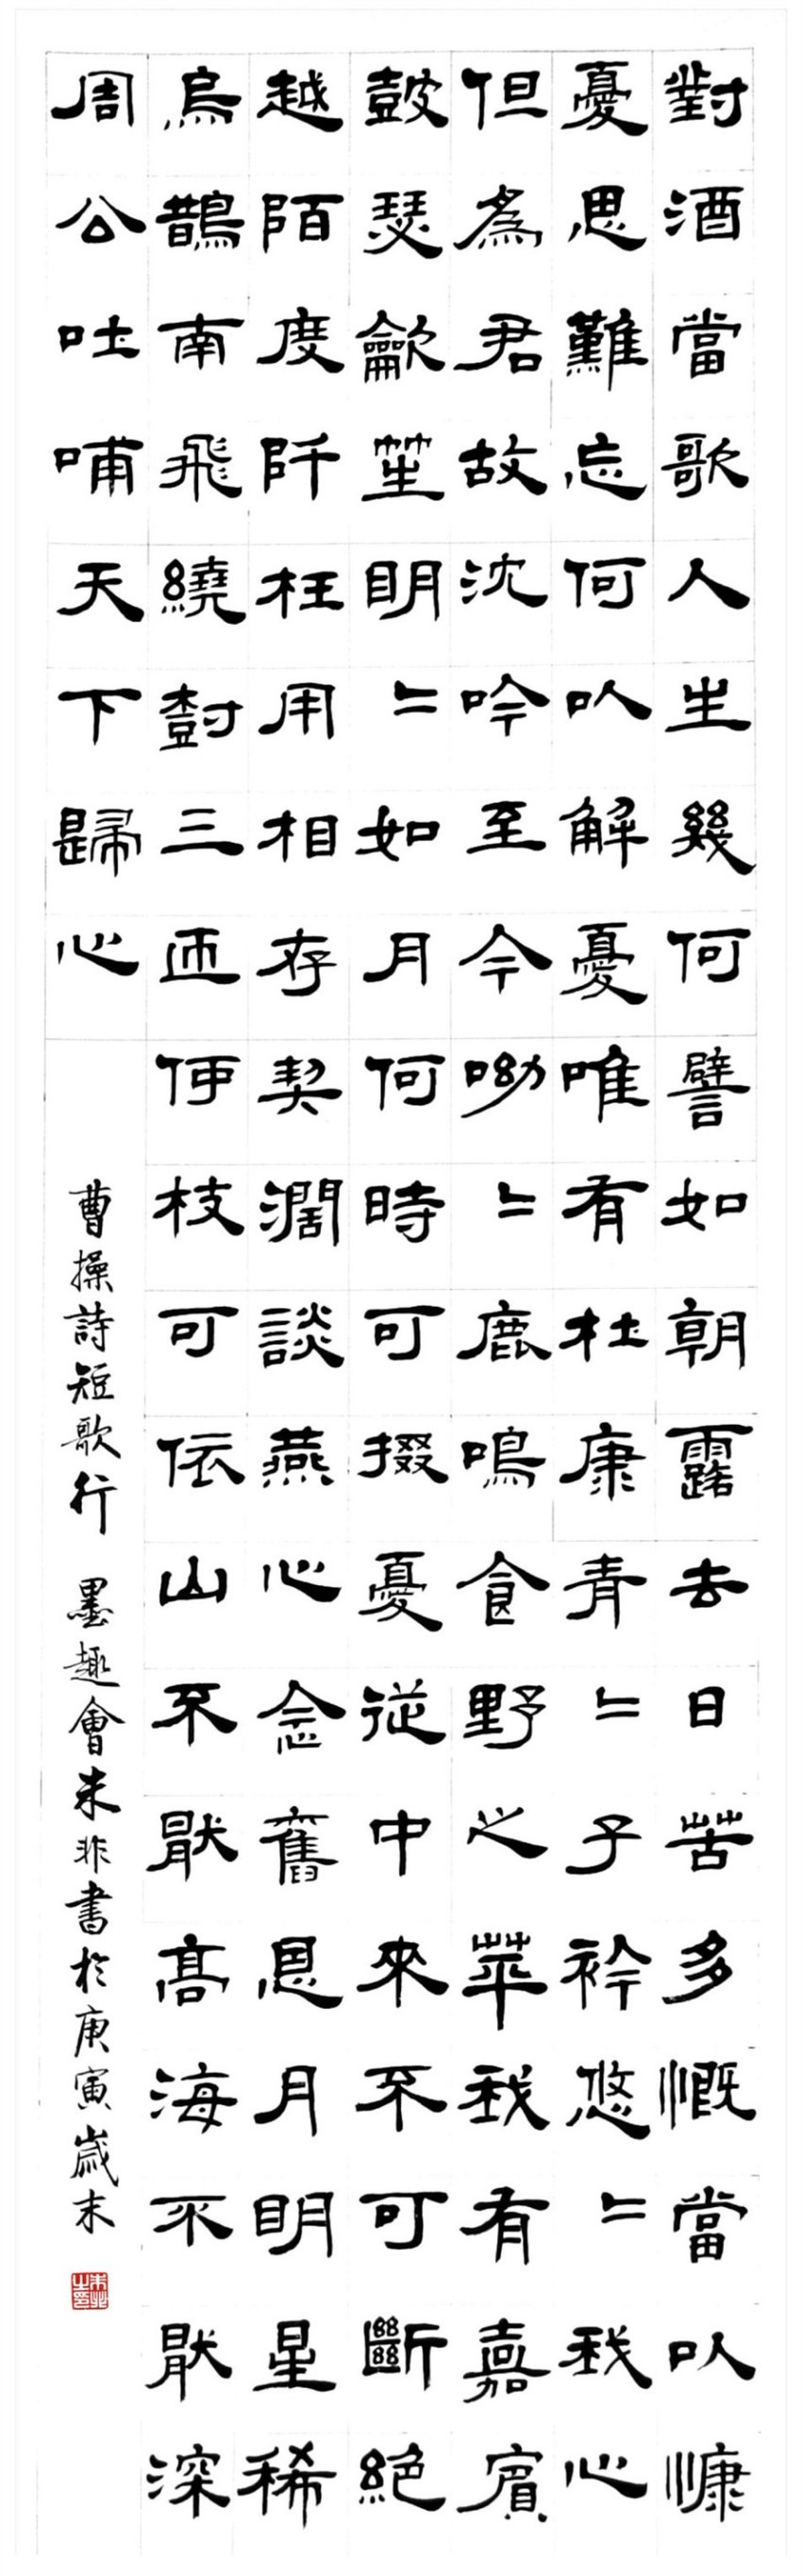 對酒當歌人生幾何譬如朝露去日苦多慨當以慷
憂思難忘何以解憂唯有杜康青〻子衿悠〻我心
但為君故沈吟至今呦〻鹿鳴食野之苹我有嘉賓
鼓瑟龡笙明〻如月何時可掇憂從中來不可斷絕
越陌度阡枉用相存契濶談燕心念舊恩月明星稀
烏鵲南飛繞樹三匝何枝可依山不厭高海不厭深
周公吐哺天下歸心
曹操詩短歌行 墨趣會朱非書於庚寅歲末
朱非之印